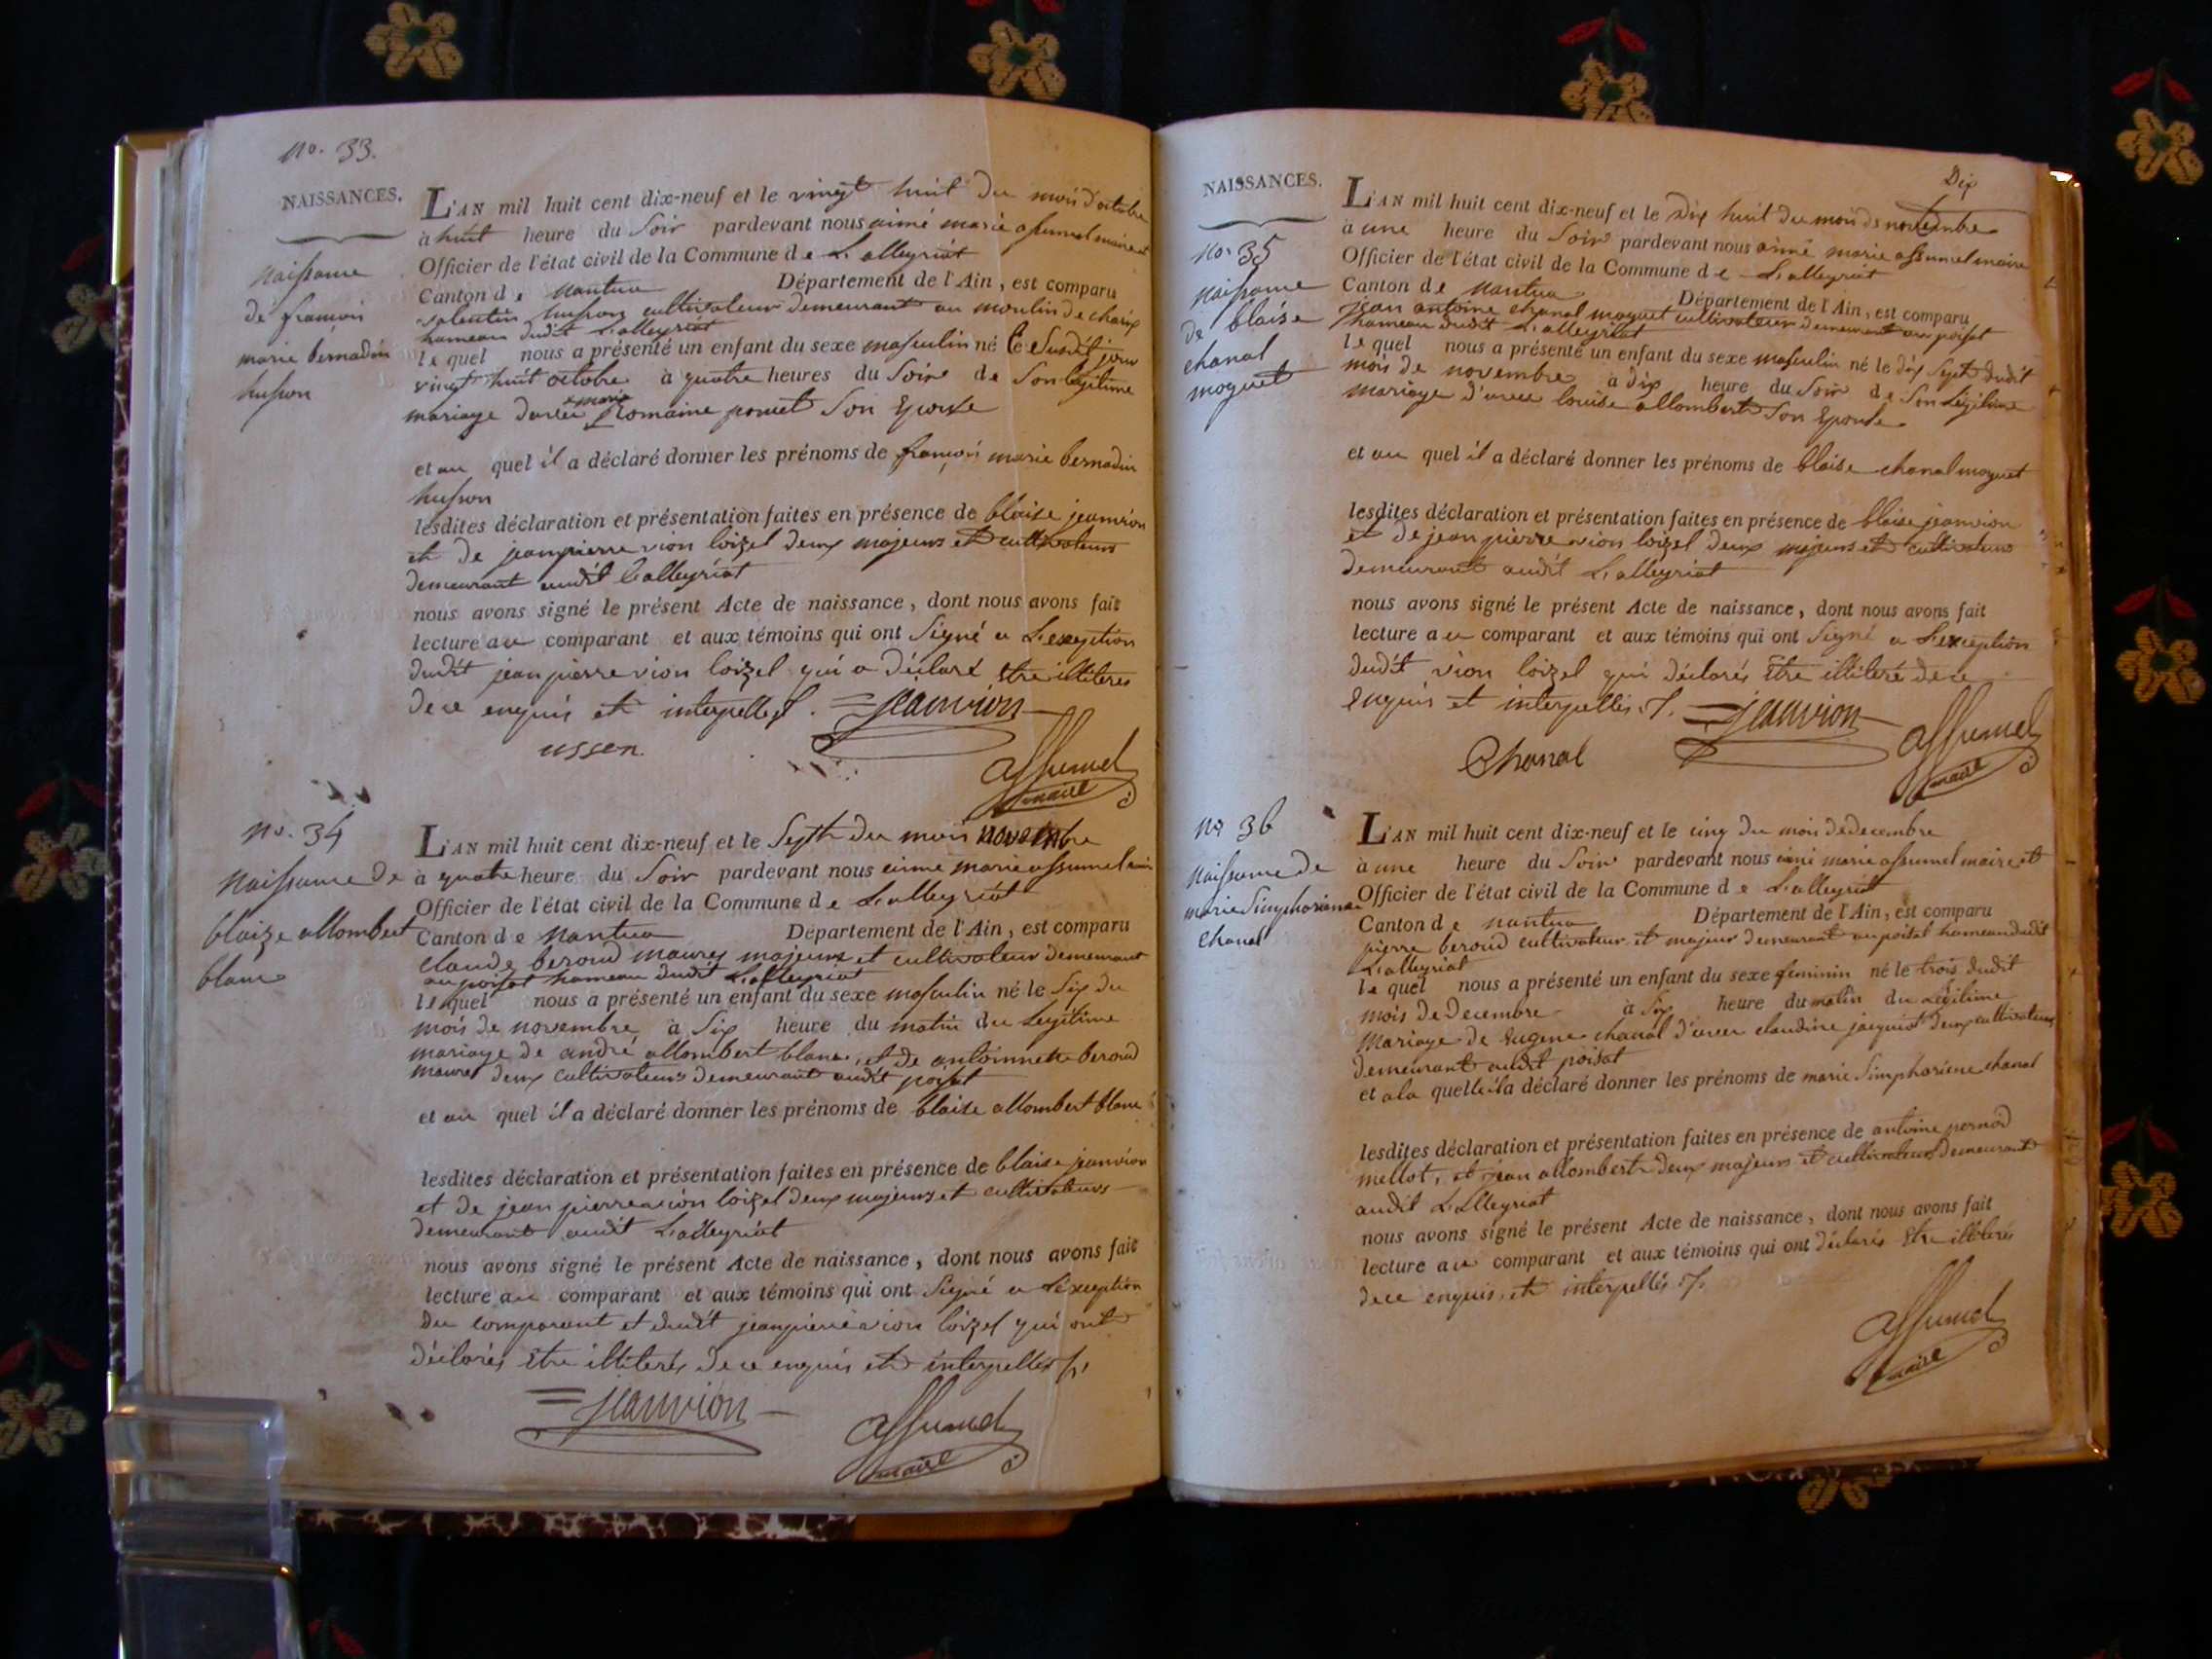 No. 33.
NAISSANCES.
Naissance
de françois
marie bernadin
husson
L'AN mil huit cent dix-neuf et le vingt huit du mois d'octobre
à huit heure du Soir pardevant nous aimé marie assumel maire et
Officier de l'état civil de la Commune de L'alleyriat
Canton de Nantua Département de l'Ain, est comparu
valentin husson cultivateur demeurant au moulin de charix
hameau dudit L'alleyriat
lequel nous a présenté un enfant du sexe masculin né le Susdit jour
vingt huit octobre à quatre heures du Soir de Son légitime
mariage d'avec marie Romaine poncet Son Epouse
et au quel il a déclaré donner les prénoms de françois marie bernadin
husson
lesdites déclaration et présentation faites en présence de blaise jeanvion
et de jean pierre vion loizel deux majeurs et cultivateurs
demeurant audit L'alleyriat
nous avons signé le présent Acte de naissance, dont nous avons fait
lecture au comparant et aux témoins qui ont Signé a L'exception
dudit jean pierre vion loizel qui a déclaré Etre illiteres
de ce enquis et interpelles.
jeanvion
ussen.
assumel
maire
No. 34
Naissance de
blaize allombert
blanc
L'AN mil huit cent dix-neuf et le Sept du mois novembre
à quatre heure du Soir pardevant nous aimé marie assumel maire
Officier de l'état civil de la Commune de L'alleyriat
Canton de Nantua Département de l'Ain, est comparu
claude beroud maurez majeur et cultivateur demeurant
au poisat hameau dudit L'alleyriat
lequel nous a présenté un enfant du sexe masculin né le Six du
mois de novembre à Six heure du matin du Légitime
mariage de andré allombert blanc, et de antoinnette beroud
maurez deux cultivateurs demeurant audit poisat
et au quel il a déclaré donner les prénoms de blaise allombert blanc
lesdites déclaration et présentation faites en présence de blaise jeanvion
et de jean pierre vion loizel deux majeurs et cultivateurs
demeurant audit L'alleyriat
nous avons signé le présent Acte de naissance, dont nous avons fait
lecture au comparant et aux témoins qui ont Signé a L'exception
du comparant et dudit jean pierre vion loizel qui ont
déclarés Etre illiterés de ce enquis et interpelles
jeanvion
assumel
maire
Dix
NAISSANCES.
No. 35
Naissance
de blaise
chanal
moquet
L'AN mil huit cent dix-neuf et le Dix huit du mois de novembre
à une heure du Soir pardevant nous aimé marie assumel maire
Officier de l'état civil de la Commune de L'alleyriat
Canton de Nantua Département de l'Ain, est comparu
jean antoine chanal moquet cultivateur demeurant au poisat
hameau dudit L'alleyriat
lequel nous a présenté un enfant du sexe masculin né le dix Sept dudit
mois de novembre à dix heure du Soir de Son Légitime
mariage d'avec louise allombert Son Epouse
et au quel il a déclaré donner les prénoms de blaise chanal moquet
lesdites déclaration et présentation faites en présence de blaise jeanvion
et de jean pierre vion loizel deux majeurs et cultivateurs
demeurant audit L'alleyriat
nous avons signé le présent Acte de naissance, dont nous avons fait
lecture au comparant et aux témoins qui ont Signé a L'exception
dudit vion loizel qui déclarés Etre illiteré de ce
Enquis et interpellés.
jeanvion
Chanal
assumel
maire
No 36
Naissance de
marie Simphoriene
chanal
L'AN mil huit cent dix-neuf et le cinq du mois de decembre
à une heure du Soir pardevant nous aimé marie assumel maire et
Officier de l'état civil de la Commune de L'alleyriat
Canton de Nantua Département de l'Ain, est comparu
pierre beroud cultivateur et majeur demeurant au poisat hameau dudit
L'alleyriat
lequel nous a présenté un enfant du sexe feminin né le trois dudit
mois de decembre à Six heure du matin du Légitime
Mariage de Eugene chanal d'avec claudine jacquiot deux cultivateurs
demeurant audit poisat
et a la quelle il a déclaré donner les prénoms de marie Simphoriene chanal
lesdites déclaration et présentation faites en présence de antoine pernod
mellot, et jean allombert deux majeurs et cultivateurs demeurant
audit L'alleyriat
nous avons signé le présent Acte de naissance, dont nous avons fait
lecture au comparant et aux témoins qui ont déclarés Etre illiterés
de ce enquis, et interpellés.
assumel
maire